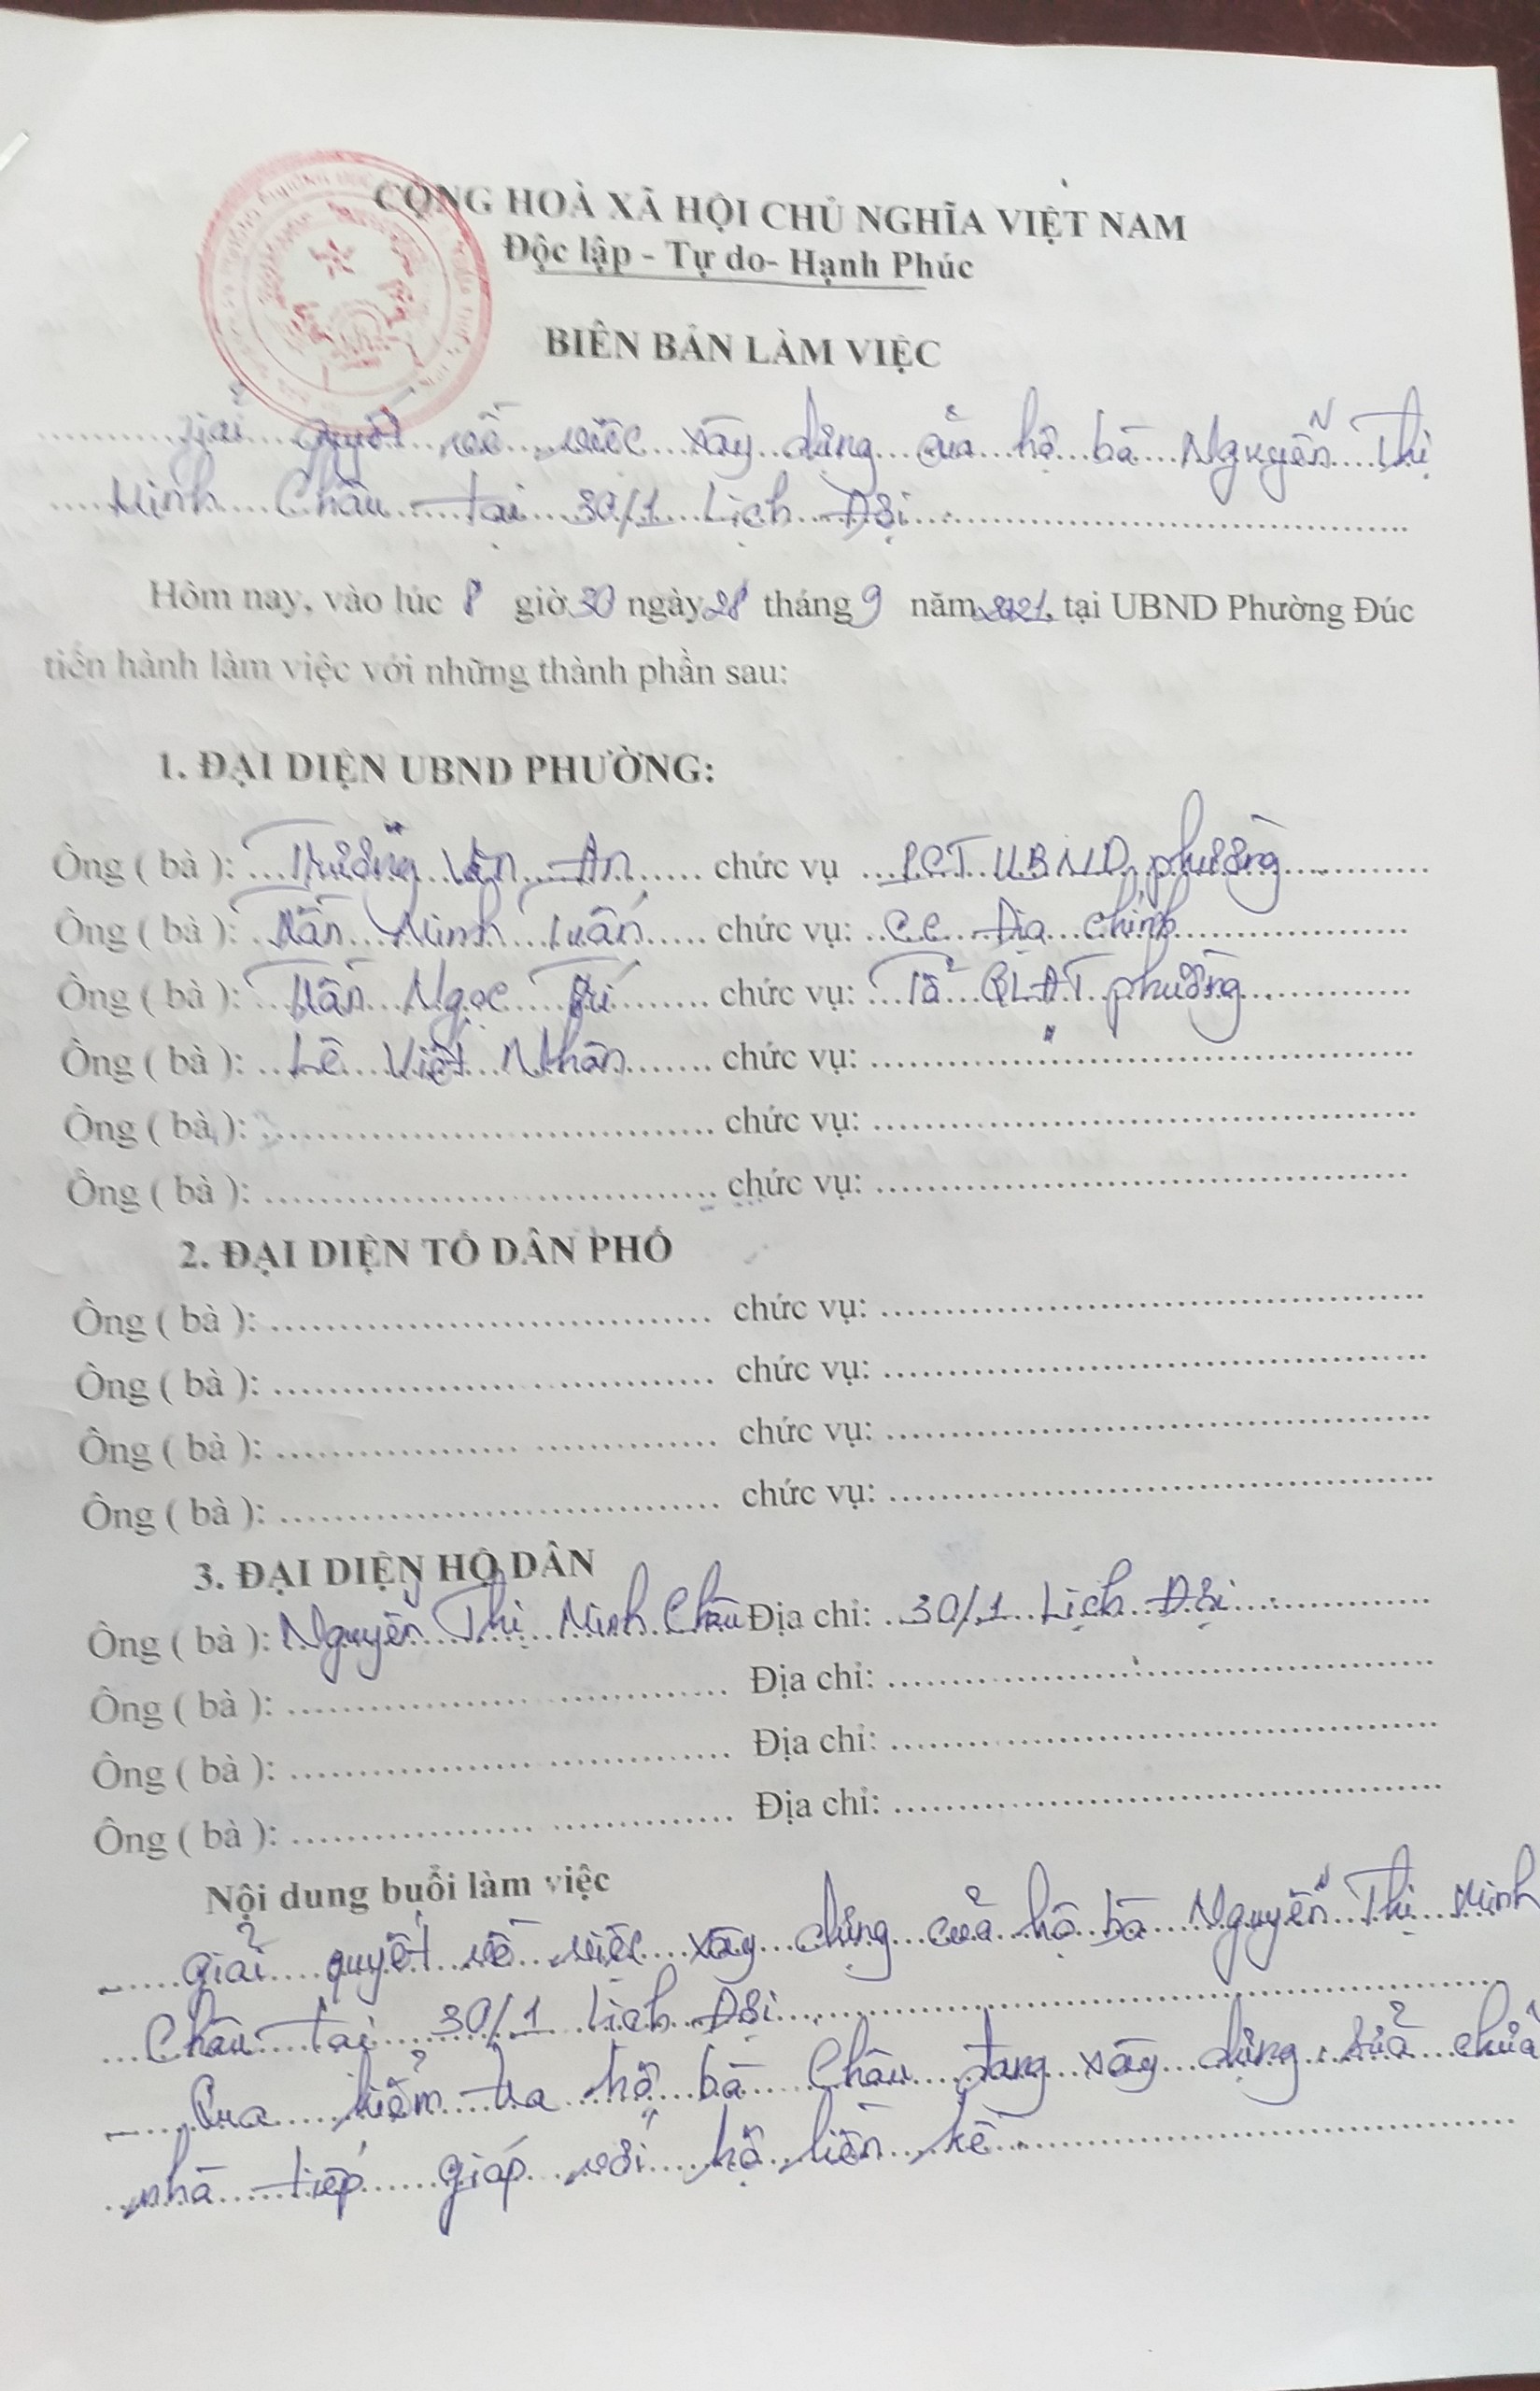 CỘNG HOÀ XÃ HỘI CHỦ NGHĨA VIỆT NAM
Độc lập - Tự do- Hạnh Phúc
BIÊN BẢN LÀM VIỆC
giải quyết về việc xây dựng của hộ bà Nguyễn Thị
Minh Châu tại 30/1 Lịch Đợi
Hôm nay, vào lúc 8 giờ 30 ngày 28 tháng 9 năm 2021, tại UBND Phường Đúc
tiến hành làm việc với những thành phần sau:
1. ĐẠI DIỆN UBND PHƯỜNG:
Ông ( bà ): Trương Văn An chức vụ PCT UBND phường
Ông ( bà ): Trần Minh Tuấn chức vụ: CC Địa chính
Ông ( bà ): Trần Ngọc chức vụ: Tổ QLĐT phường
Ông ( bà ): Lê Việt Nhân chức vụ:
Ông ( bà ): chức vụ:
Ông ( bà ): chức vụ:
2. ĐẠI DIỆN TỔ DÂN PHỐ
Ông ( bà ): chức vụ:
Ông ( bà ): chức vụ:
Ông ( bà ): chức vụ:
Ông ( bà ): chức vụ:
3. ĐẠI DIỆN HỘ DÂN
Ông ( bà ): Nguyễn Thị Minh Châu Địa chỉ: 30/1 Lịch Đợi
Ông ( bà ): Địa chỉ:
Ông ( bà ): Địa chỉ:
Ông ( bà ): Địa chỉ:
Nội dung buổi làm việc
- giải quyết về việc xây dựng của hộ bà Nguyễn Thị Minh
Châu tại 30/1 Lịch Đợi
- Qua kiểm tra hộ bà Châu đang xây dựng sửa chửa
nhà tiếp giáp với hộ liền kề.